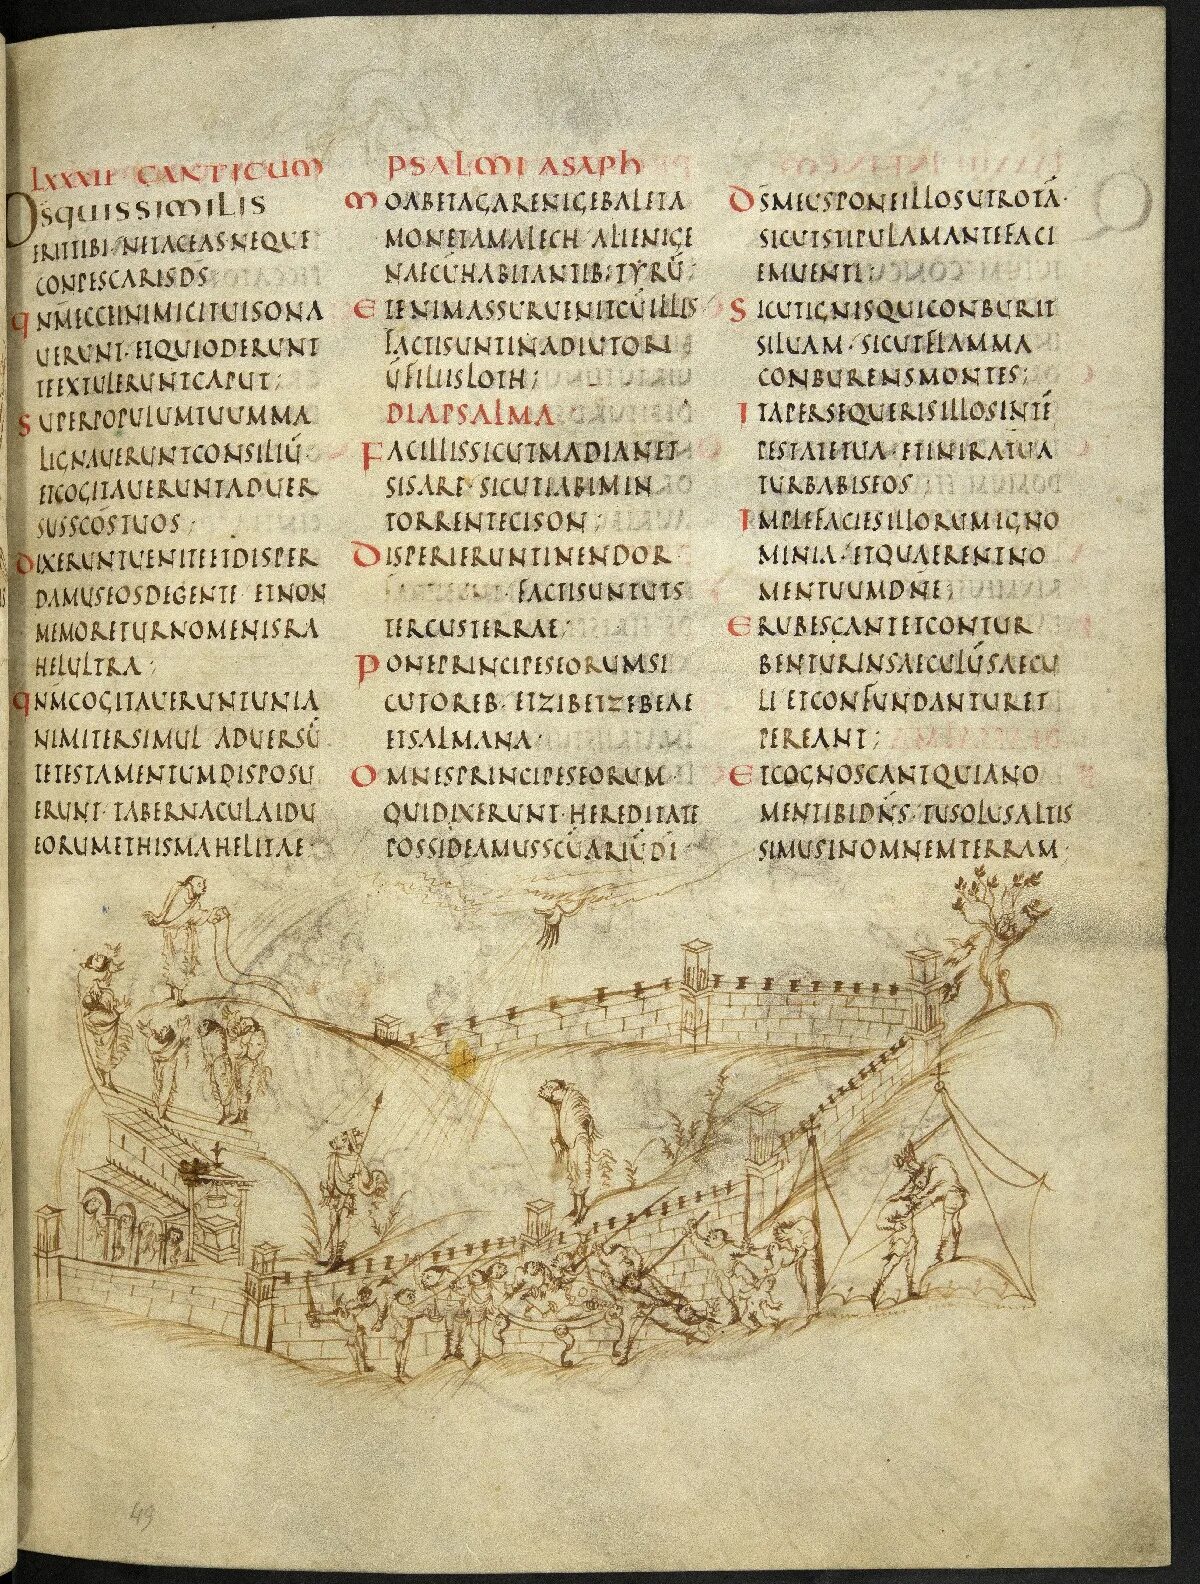 LXXXII CANTICUM PSALMI ASAPH
D̄S QUIS SIMILIS
ERIT TIBI NE TACEAS NEQUE
CONPESCARIS DS
QNM̄ ECCE INIMICI TUI SONA
UERUNT· ET QUI ODERUNT
TE EXTULERUNT CAPUT;
SUPER POPULUM TUUM MA
LIGNAUERUNT CONSILIŪ
ET COGITAUERUNT ADUER
SUS SCŌS TUOS;
DIXERUNT UENITE ET DISPER
DAMUS EOS DE GENTE· ET NON
MEMORETUR NOMEN ISRA
HEL ULTRA;
QNM̄ COGITAUERUNT UNIA
NIMITER SIMUL ADUERSŪ
TE TESTAMENTUM DISPOSU
ERUNT· TABERNACULA IDU
MOAB ET AGARENI GEBAL ET A
MON ET AMALECH· ALIENIGE
NAE CŪ HABITANTIB; TYRŪ
ETENIM ASSUR UENIT CŪ ILLIS
FACTI SUNT IN ADIUTORI
Ū FILIIS LOTH;
DIAPSALMA
FAC ILLIS SICUT MADIAN ET
SISARE· SICUT IABIM IN
TORRENTE CISON;
DISPERIERUNT IN ENDOR
FACTI SUNT UT S
TERCUS TERRAE;
PONE PRINCIPES EORUM SI
CUT OREB· ET ZIB ET ZEBEAE
ET SALMANA·
OMNES PRINCIPES EORUM
QUI DIXERUNT· HEREDITATE
POSSIDEAMUS SCŪARIŪ DI
D̄S MEUS PONE ILLOS UT ROTĀ·
SICUT STIPULAM ANTE FACI
EM UENTI·
SICUT IGNIS QUI CONBURIT
SILUAM· SICUT FLAMMA
CONBURENS MONTES;
ITA PERSEQUERIS ILLOS IN TĒ
PESTATE TUA· ET IN IRA TUA
TURBABIS EOS
IMPLE FACIES ILLORUM IGNO
MINIA· ET QUAERENT NO
MEN TUUM DN̄E;
ERUBESCANT ET CONTUR
BENTUR IN SAECULŪ SAECU
LI ET CONFUNDANTUR ET
PEREANT;
ET COGNOSCANT QUIA NO
MEN TIBI DN̄S· TU SOLUS ALTIS
SIMUS IN OMNEM TERRAM·
EORUM ET HISMAHELITAE·
49